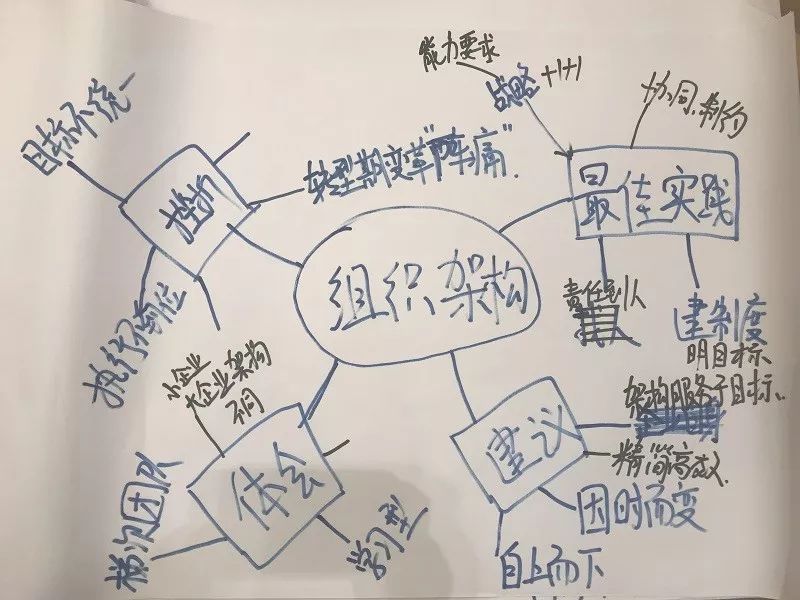 能力要求
战略 +1+1
协同、制约
目标不统一
挑战
转型期变革"阵痛".
最佳实践
组织架构
责任到人
建制度
明目标
执行不到位
小企业
大企业架构
不同
架构服务于目标、
建议
精简高效.
体会
因时而变
梯次团队
学习型
自上而下